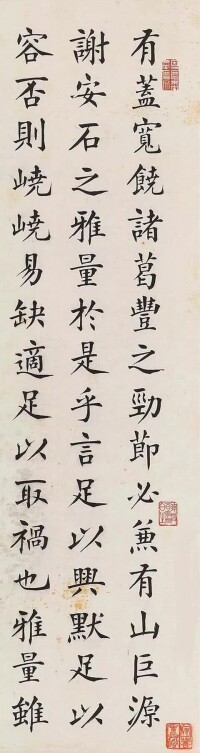 有蓋寬饒諸葛豐之勁節必兼有山巨源
謝安石之雅量於是乎言足以興默足以
容否則嶢嶢易缺適足以取禍也雅量雖